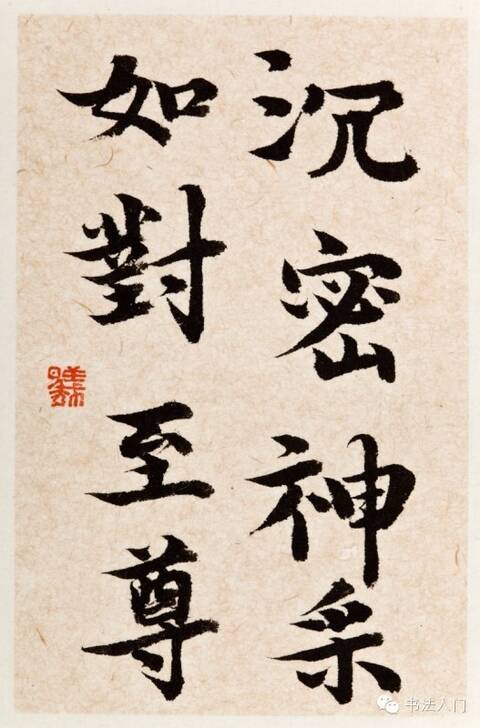 沉密神采
如對至尊
书法入门